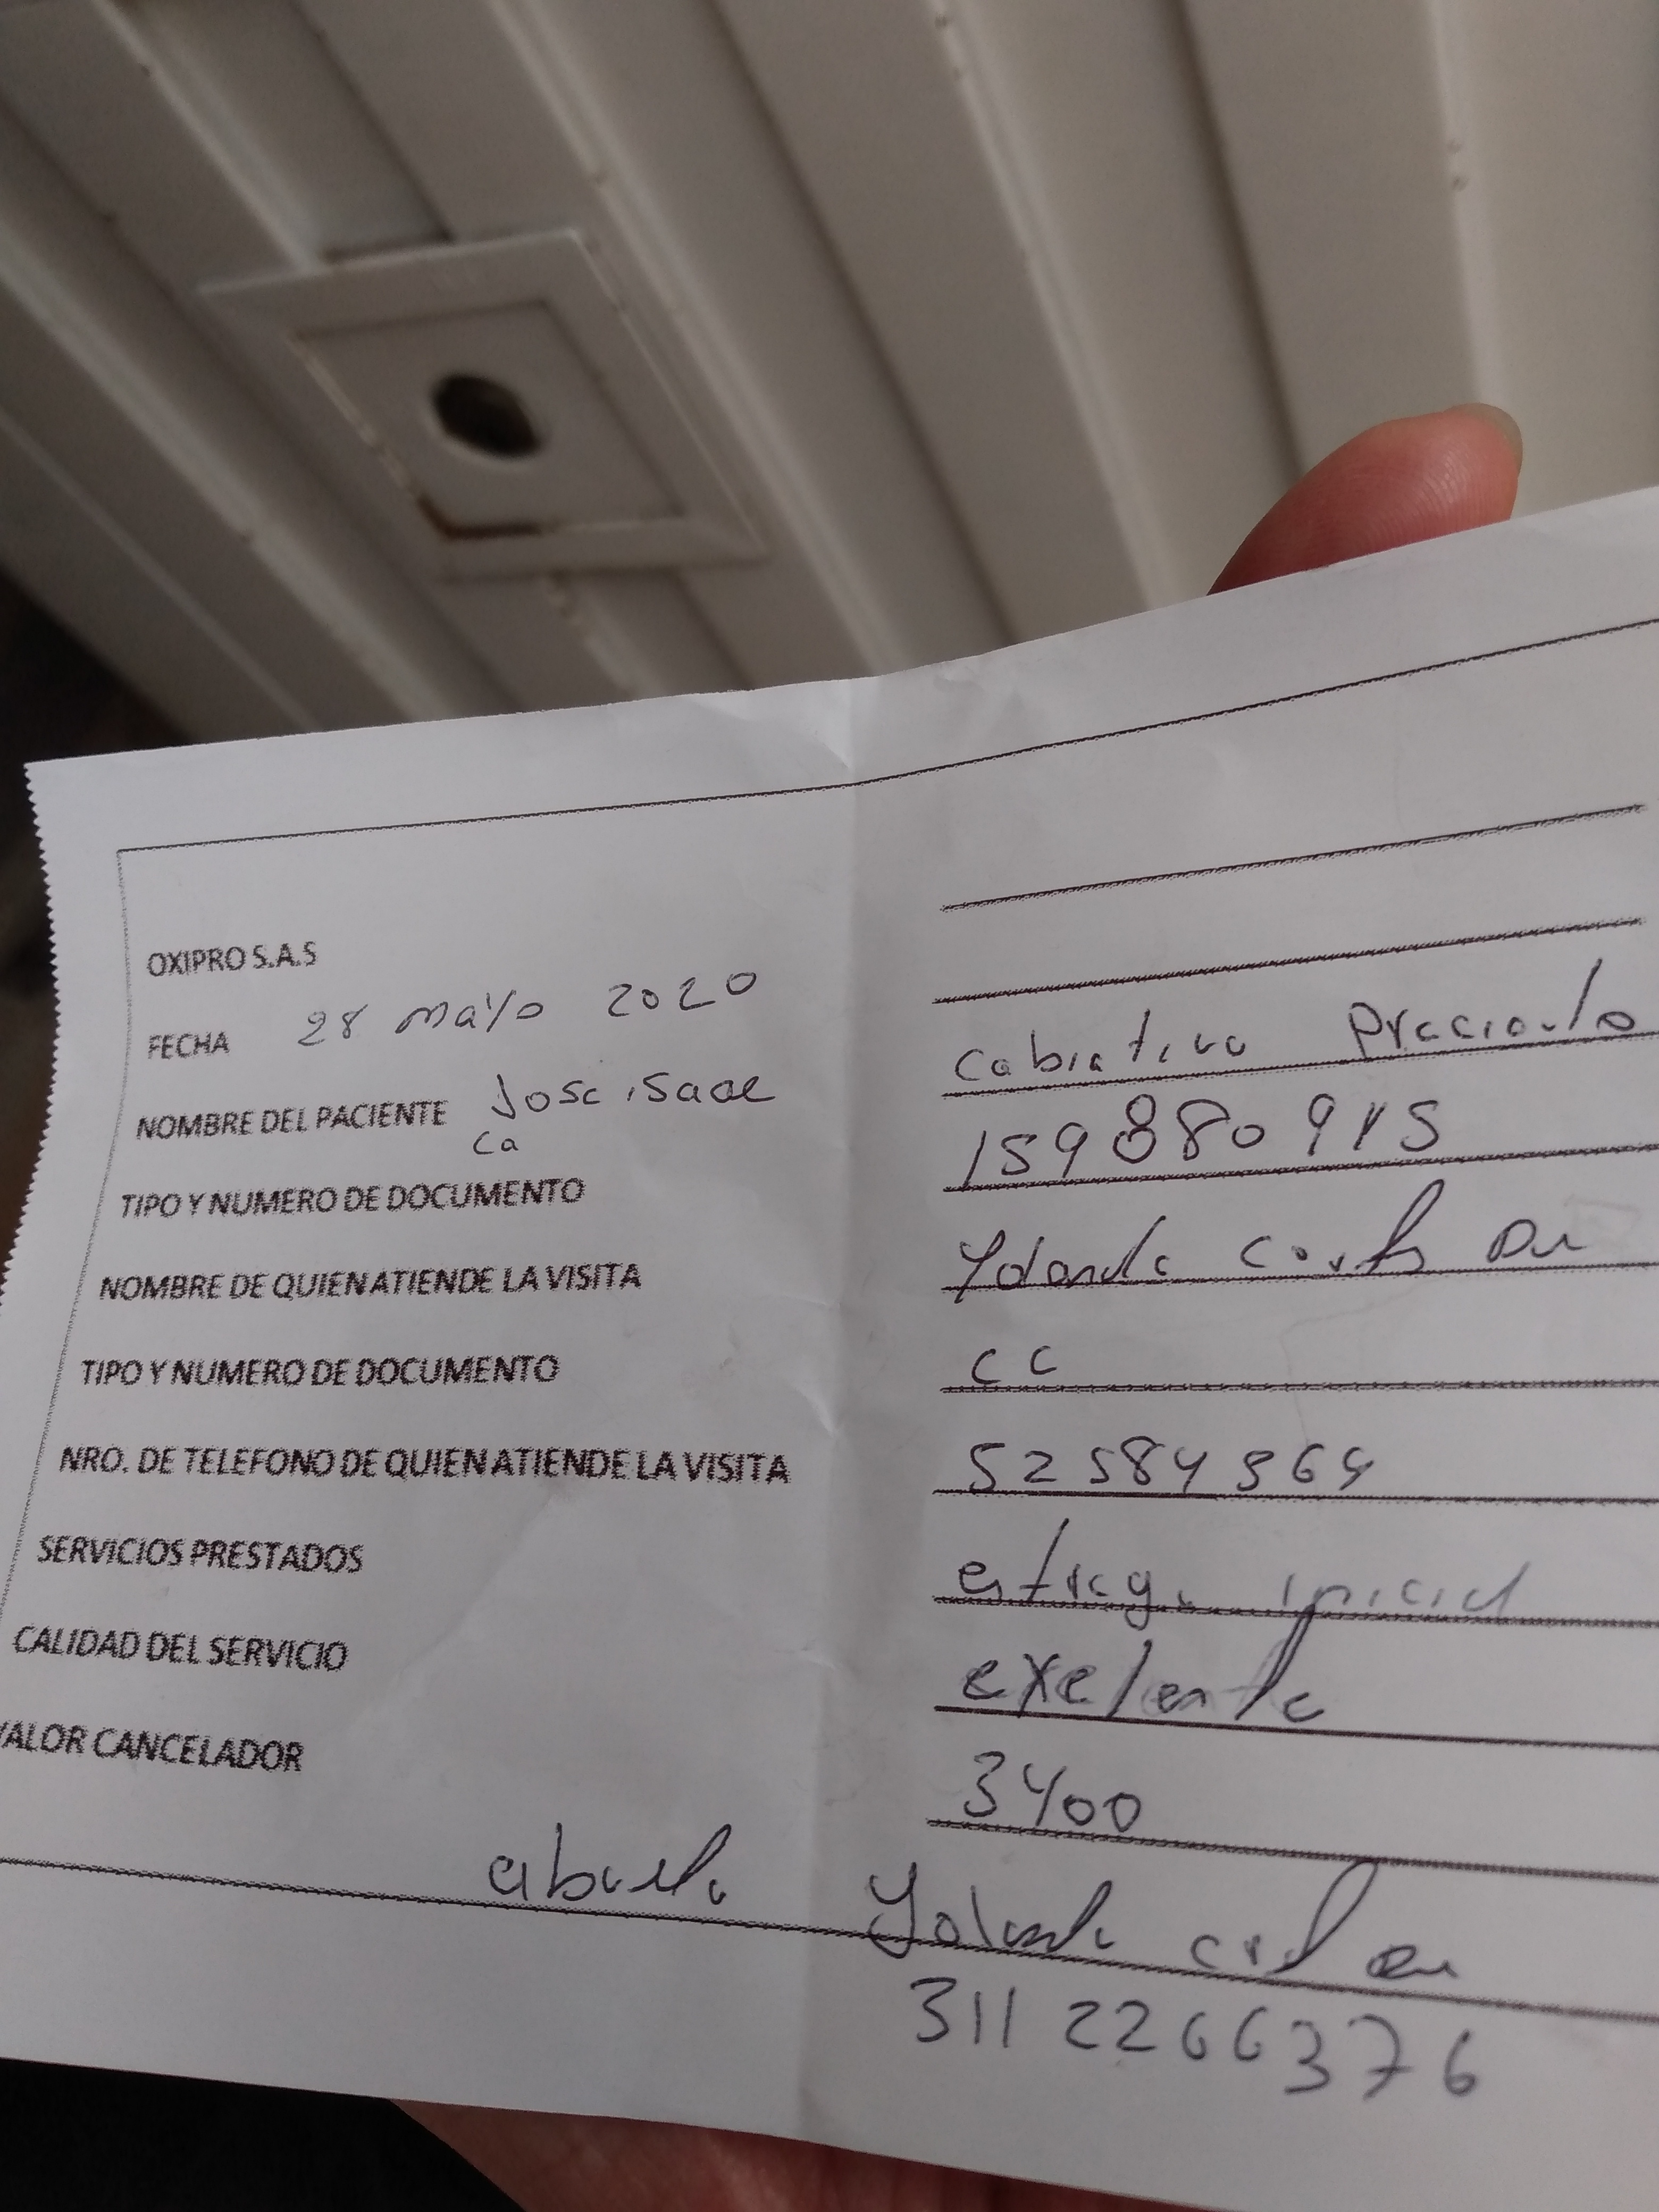 OXIPRO S.A.S
FECHA 28 mayo 2020
NOMBRE DEL PACIENTE Jose isaac
ca cabiativa Preciado
TIPO Y NUMERO DE DOCUMENTO 1598809
NOMBRE DE QUIEN ATIENDE LA VISITA Yolanda
TIPO Y NUMERO DE DOCUMENTO CC
NRO. DE TELEFONO DE QUIEN ATIENDE LA VISITA 52584364
SERVICIOS PRESTADOS entrega inicial
CALIDAD DEL SERVICIO exelente
VALOR CANCELADOR 3400
abuela Yolanda
311 2266376